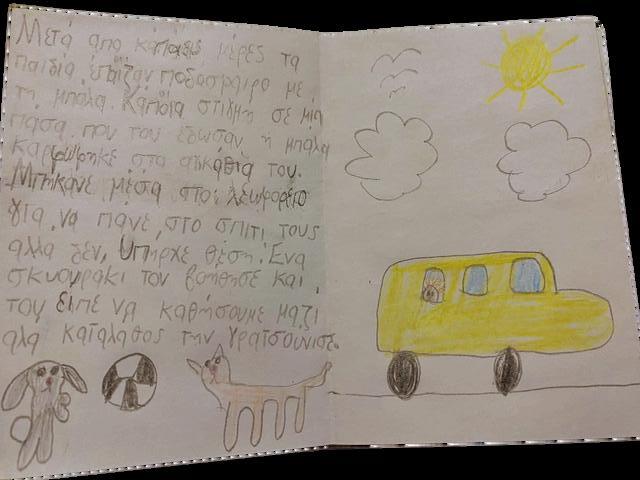 Μετά απο κάποιες μέρες τα
παιδια έπαιζαν ποδοσφαιρο με
τη μπαλα. Καποια στιγμη σε μια
πασα που του έδωσαν η μπαλα
καρφωθηκε στα αγκαθια του.
Μπηκανε μέσα στο λεωφορείο
για να πανε στο σπιτι τους
αλλα δεν υπηρχε θεση. Ενα
σκυουρακι τον βοηθησε και
του ειπε να καθησουμε μαζι
αλα καταλαθος την γρατσουνισε.